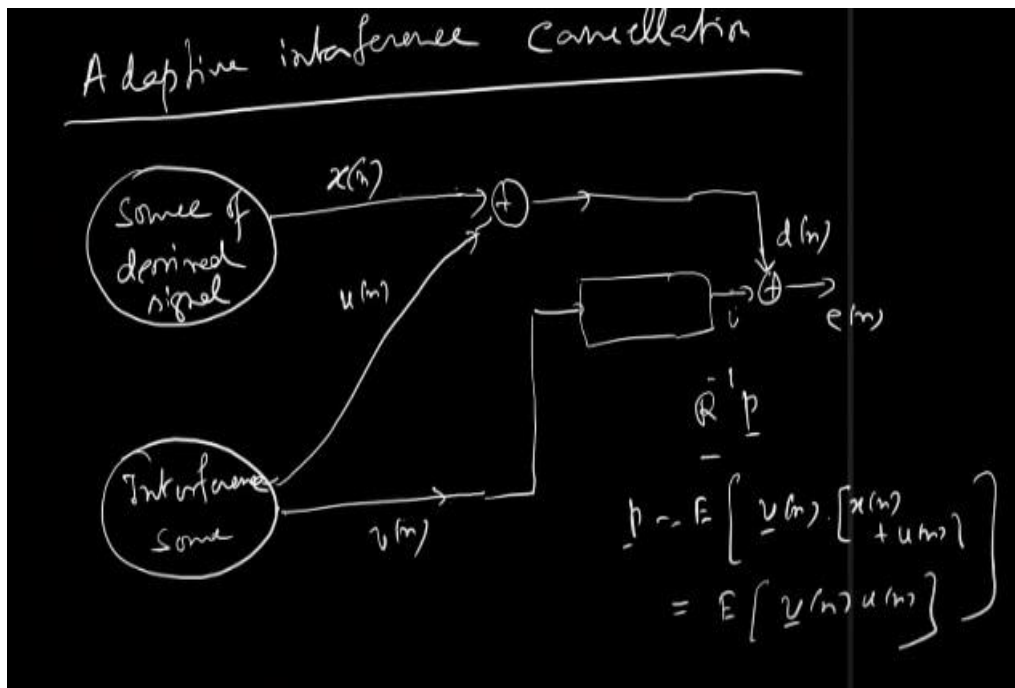 Adaptive interference cancellation
x(n)
Source of
desired
signal
d(n)
u(n)
e(n)
R⁻¹ p
Interference
Source
v(n)
p = E [ v(n) . [x(n)
+ u(n)]
= E [ v(n) u(n) ]